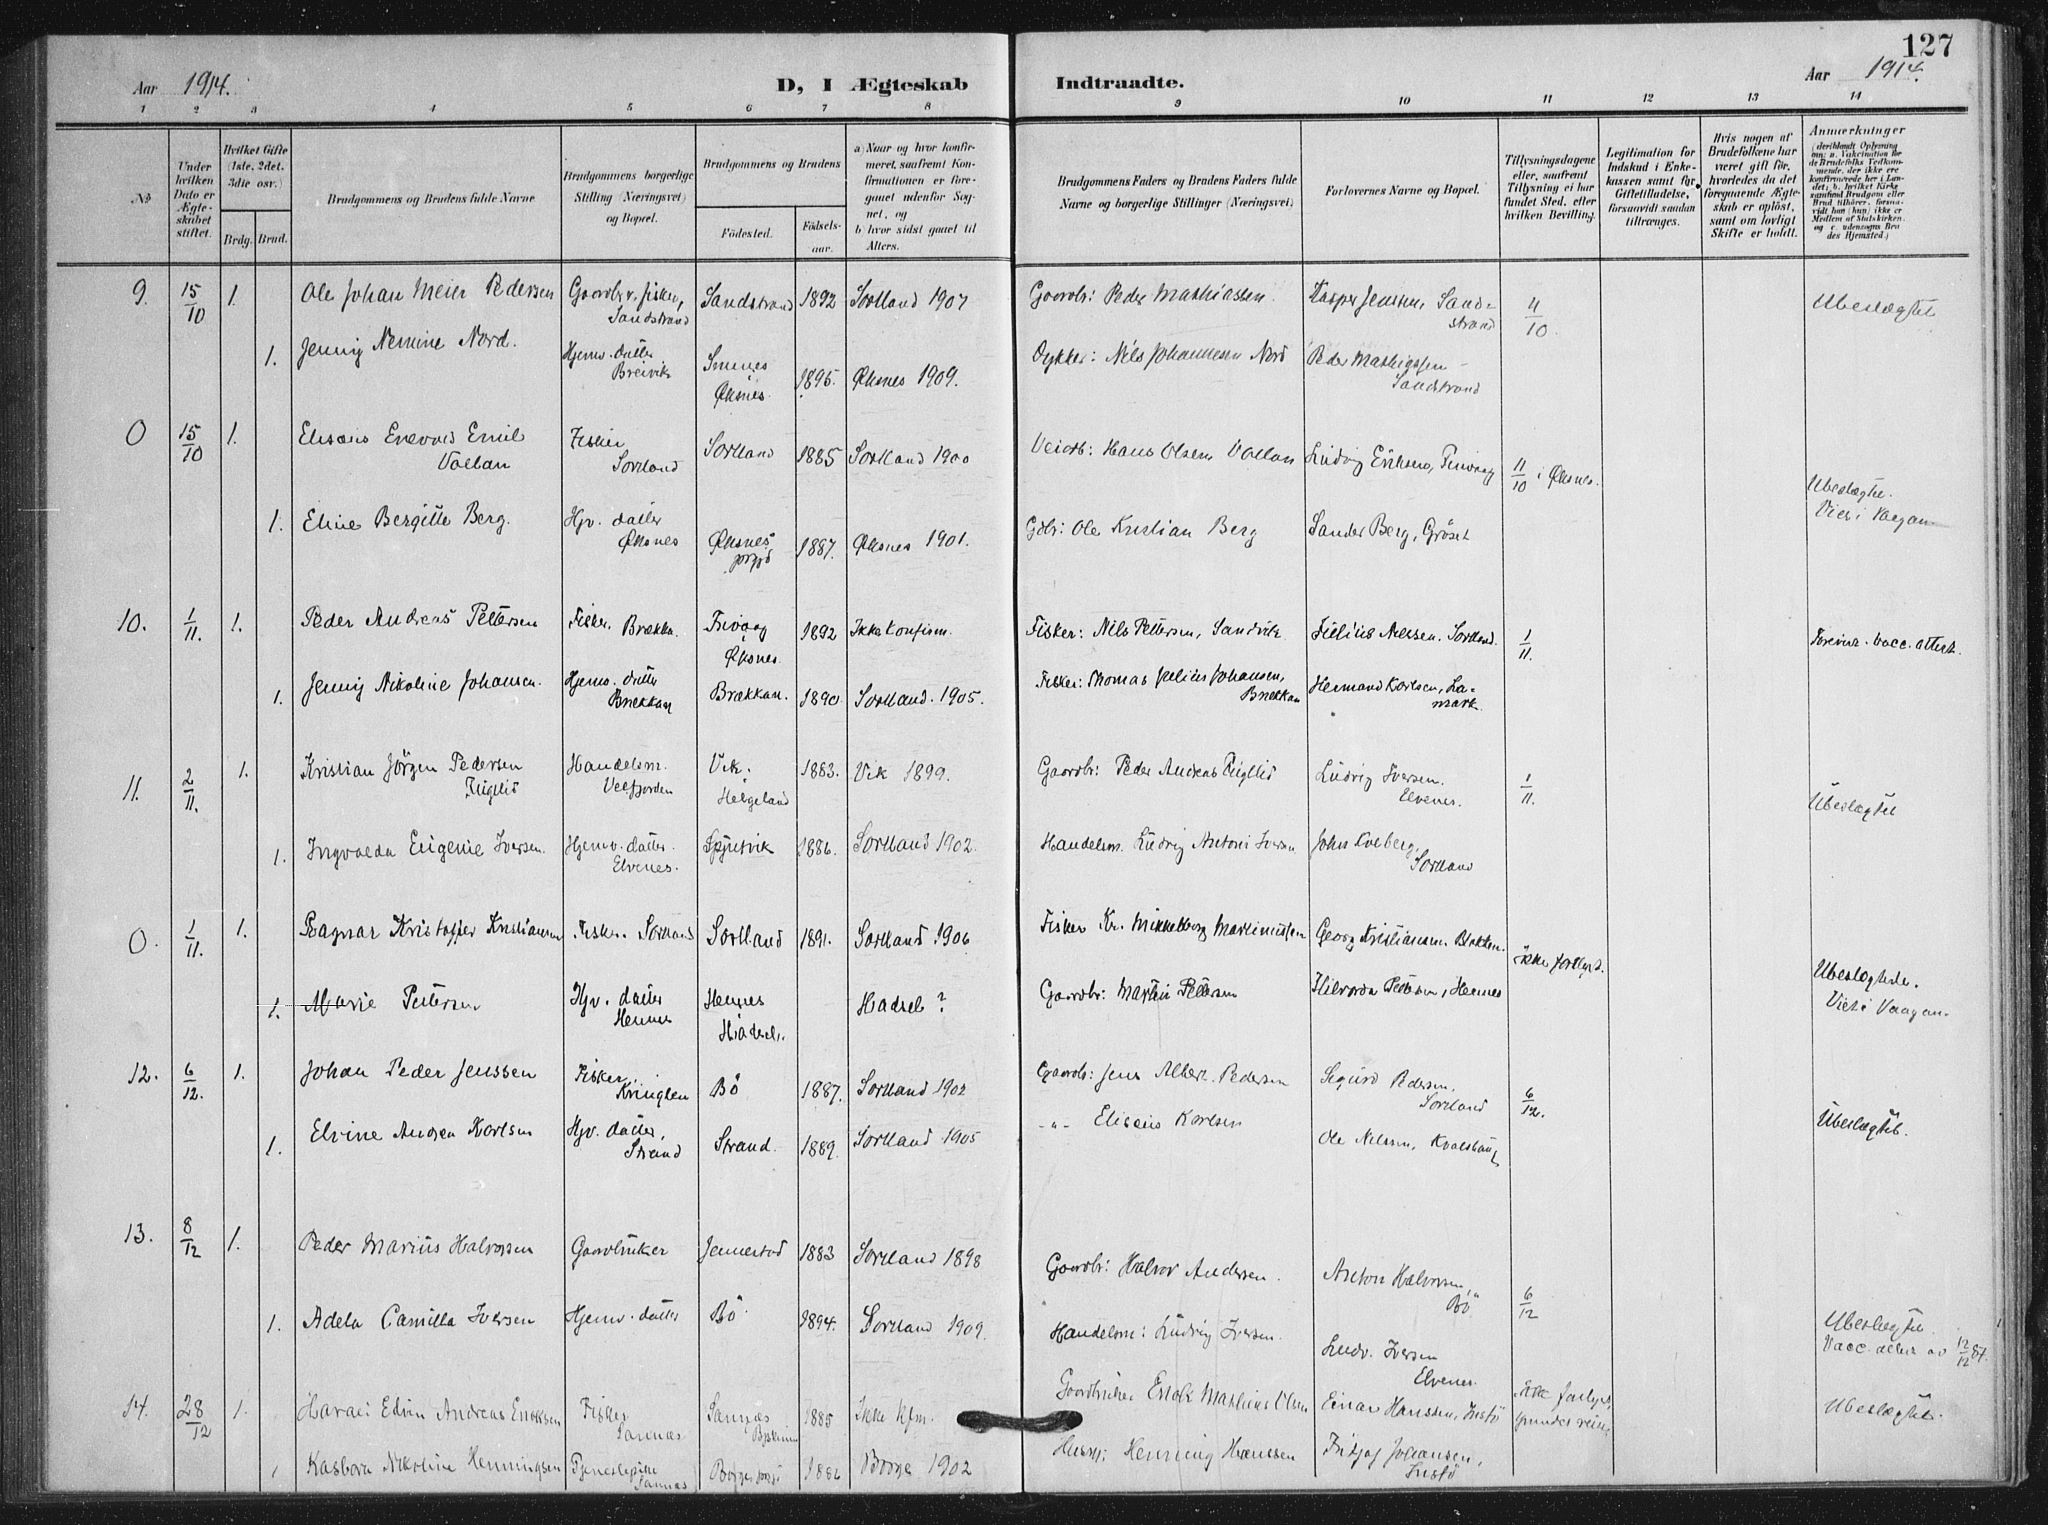 127
Aar 1914.
D, I Ægteskab Indtraadte.
Aar 1914.
1 2 3 4 5 6 7 8 9 10 11 12 13 14
No
Under hvilken Dato er Ægteskabet stiftet.
Hvilket Gifte (1ste, 2det, 3die osv.)
Brdg. Brud.
Brudgommens og Brudens fulde Navne.
Brudgommens borgerlige Stilling (Næringsvei) og Bopæl.
Brudgommens og Brudens
Fødested. Fødsels-aar.
a) Naar og hvor konfirmeret, saafremt Konfirmationen er foregaaet udenfor Sognet, og
b) hvor sidst gaaet til Alters.
Brudgommens Faders og Brudens Faders fulde Navne og borgerlige Stillinger (Næringsvei)
Forlovernes Navne og Bopæl.
Tillysningsdagene eller, saafremt Tillysning ei har fundet Sted, efter hvilken Bevilling.
Legitimation for Indskud i Enkekassen samt for Giftetilladelse, forsaavidt saadan tiltrænges.
Hvis nogen af Brudefolkene har været gift før, hvorledes da det foregaaende Ægteskab er opløst, samt om lovligt Skifte er holdt.
Anmærkninger (deriblandt Oplysning om: a. Vakcination for de Brudefolks Vedkommende, der ikke ere konfirmerede her i Landet; b. hvilket Kirkesamfund Brudgom eller Brud tilhører, forsaavidt han (hun) ikke er Medlem af Statskirken, og c. udensogns Brudes Hjemsted.)
9. 15/10 1. Ole Johan Meier Pedersen Gaardbr. fisker, Sandstrand Sandstrand 1892 Sortland 1907 Gaardb: Peder Mathiassen. Kasper Jenssen, Sandstrand 4/10. Ubeslægtet
1. Jenny Nemine Nord. Hjemv. datter Breivik Smines Øksnes. 1895. Øksnes 1909. Dykker: Nils Johannesen Nord Peder Mathiassen Sandstrand
0 15/10 1. Elisæus Enevold Emil Vollan Fisker Sortland Sortland 1885 Sortland 1900 Veiarb: Hans Olsen Vollan Ludvig Eriksen, Tinvaag 11/10 i Øksnes. Ubeslægtet. Viet i Vaagan
1. Eline Bergitte Berg. Hjv. datter Øksnes Øksnes prgjd 1887. Øksnes 1901. Gdbr: Ole Kristian Berg Sander Berg, Gröset
10. 1/11. 1. Peder Andreas Pettersen Fisker. Brækka. Tinvaag Øksnes. 1892 Ikke konfirm. Fisker: Nils Pettersen, Sandvik Julius Nilssen. Sortland. 1/11. Forevist vacc. attest.
1. Jenny Nikoline Johansen. Hjemv. datter Brækkan Brækkan. 1890 Sortland. 1905. Fisker: Thomas Julius Johansen, Brækkan Hermand Karlsen, Lamark.
11. 2/11. 1. Kristian Jörgen Pedersen Fuglli Handelsm. Velfjorden Vik. Helgeland 1883. Vik 1899. Gaardb: Peder Andreas Fuglli Ludvig Iversen. Elvenes. 1/11. Ubeslægtet
1. Ingvalda Eugenie Iversen. Hjemv. datter. Elvenes. Spjutvik 1886. Sortland 1902. Handelsm. Ludvig Antoni Iversen John Kolberg, Sortland
0. 1/11. 1. Ragnar Kristoffer Kristiansen Fisker. Sortland Sortland 1891. Sortland 1906 Fisker Kr. Mikkelborg Martinussen Georg Kristiansen. Blokken. ikke forlyst. Ubeslægtede. Viet i Vaagan.
1. Marie Pettersen Hjv. datter Hennes Hennes Hadsel. Hadsel? Gaardbr: Martin Pettersen Hilvarda Pettersen, Hennes
12. 6/12. 1. Johan Peder Jenssen Fisker. Kringlen Bö 1887. Sortland 1902 Gaardb: Jens Albert Pedersen Sigurd Pedersen, Sortland 6/12. Ubeslægtet.
1. Elvine Andrea Karlsen Hjv. datter, Strand Strand. 1889. Sortland 1905 -"- Elisæus Karlsen Ole Nilssen, Kvalshaug
13. 8/12 1. Peder Marius Halvorsen Gaardbruker Jennestad 1883 Sortland 1898 Gaardbr: Halvor Andersen. Anton Halvorsen, Bö 6/12
1. Adela Camilla Iversen Hjemv. datter Bö 1894. Sortland 1909. Handelsm: Ludvig Iversen. Ludv. Iversen Elvenes. Ubeslægtet. Vacc. attest av 12/12 87.
14. 28/12 1. Harald Edvin Andreas Enoksen Fisker Sannæs Sannæs 1885 Ikke kfm. Gaardbruker Enok Mathius Olsen Einar Hanssen, Instö ikke forlyst grundet reise Ubeslægtet.
1 Kasbara Nikoline Henningsen Tjenestepike Sannæs Borge 1886 Borge 1902 Husm: Henning Hanssen Fritjof Johansen, Instö